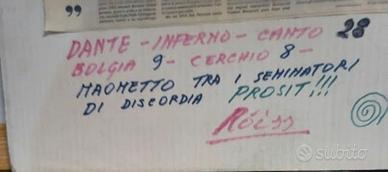 ”
DANTE - INFERNO - CANTO 28
BOLGIA 9 - CERCHIO 8 -
MAOMETTO TRA I SEMINATORI
DI DISCORDIA PROSIT!!!
subito